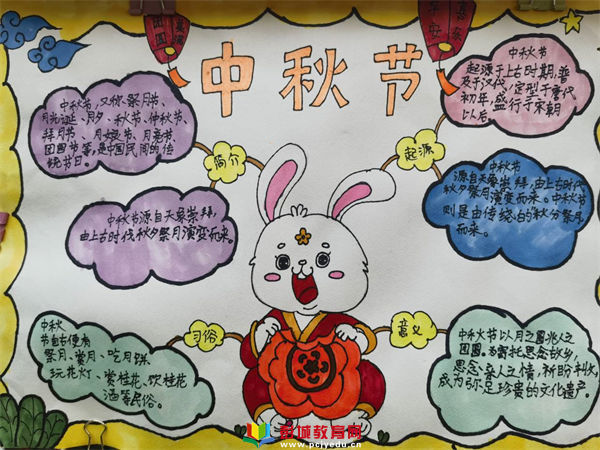 团圆
平安
喜乐
中秋节
中秋节,又称祭月节、
月光诞、月夕、秋节、仲秋节、
拜月节、月娘节、月亮节、
团圆节等,是中国民间的传
统节日。
简介
中秋节源自天象崇拜,
由上古时代秋夕祭月演变而来。
中秋节
起源于上古时期,普
及于汉代,定型于唐代
初年,盛行于宋朝
以后。
起源
中秋节
源自天象崇拜,由上古时代
秋夕祭月演变而来。中秋节
则是由传统的秋分祭月
而来。
习俗
中秋
节自古便有
祭月、赏月、吃月饼、
玩花灯、赏桂花、饮桂花
酒等民俗。
意义
中秋节以月之圆兆人之
团圆。为寄托思念故乡,
思念亲人之情,祈盼丰收,
成为弥足珍贵的文化遗产。
教城教育网
www.pcjyedu.cn